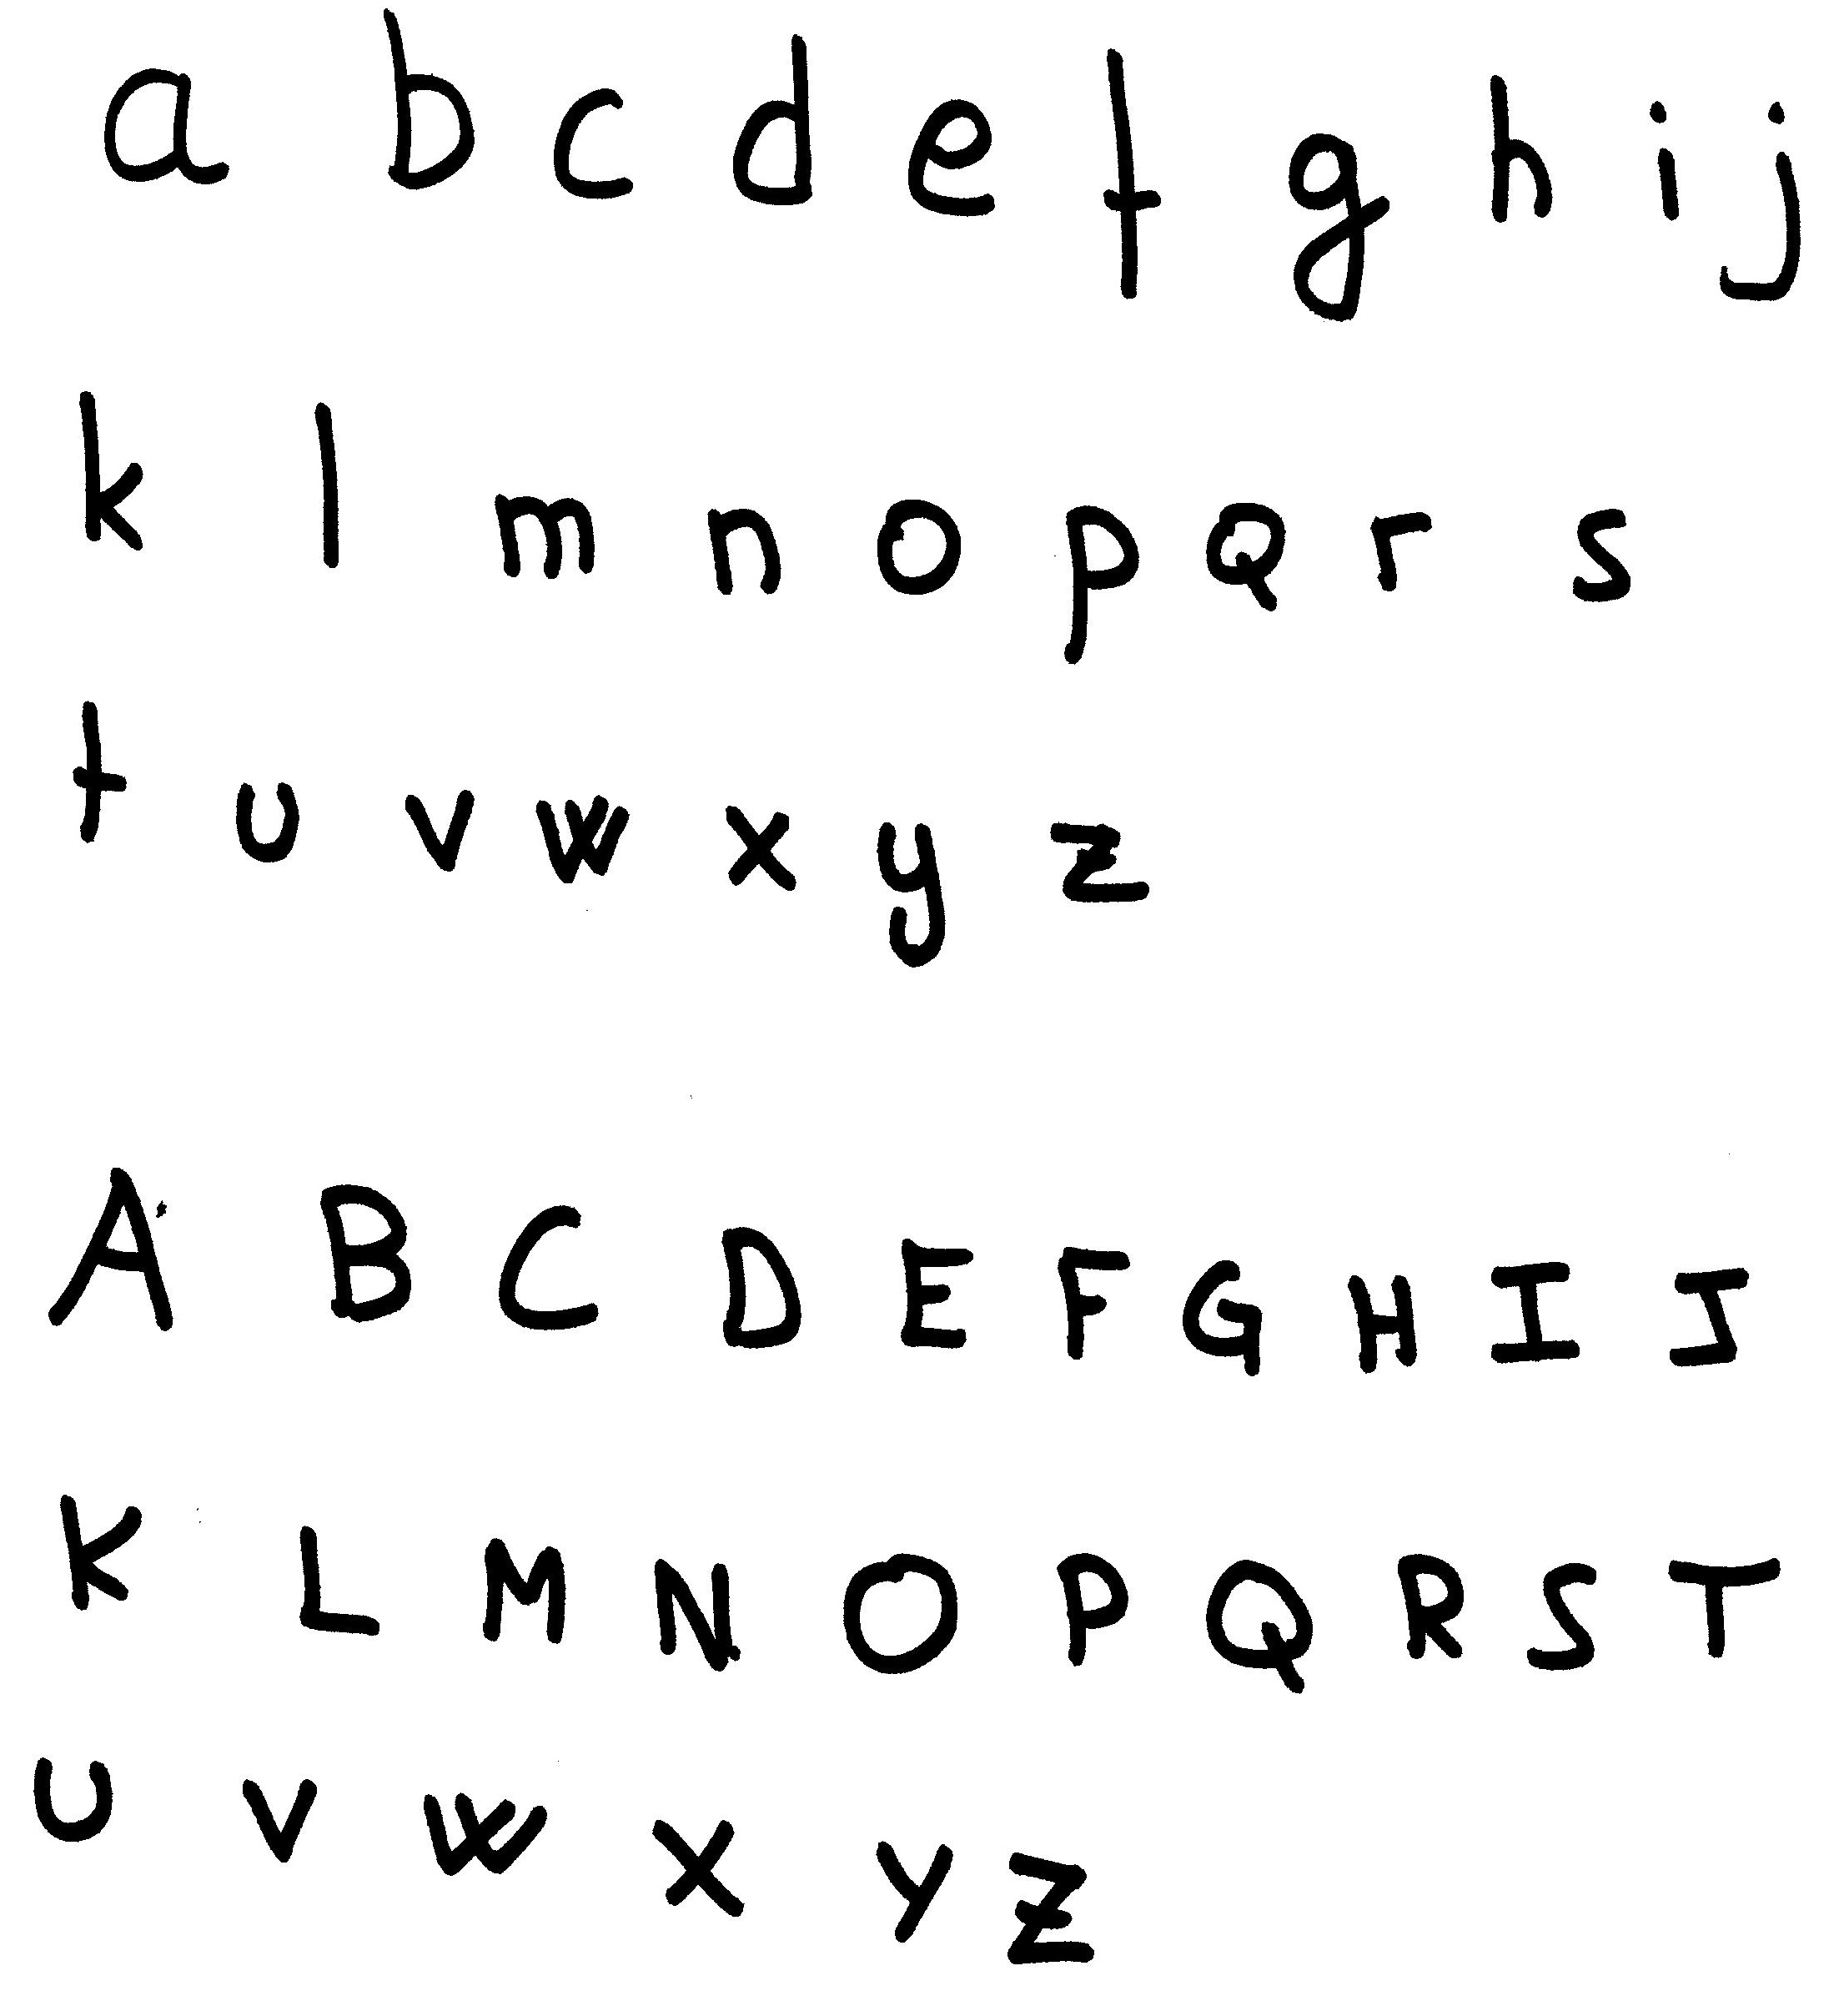 a b c d e f g h i j
k l m n o p Q r s
t u v w x y z
A B C D E F G H I J
K L M N O P Q R S T
U V W X Y Z